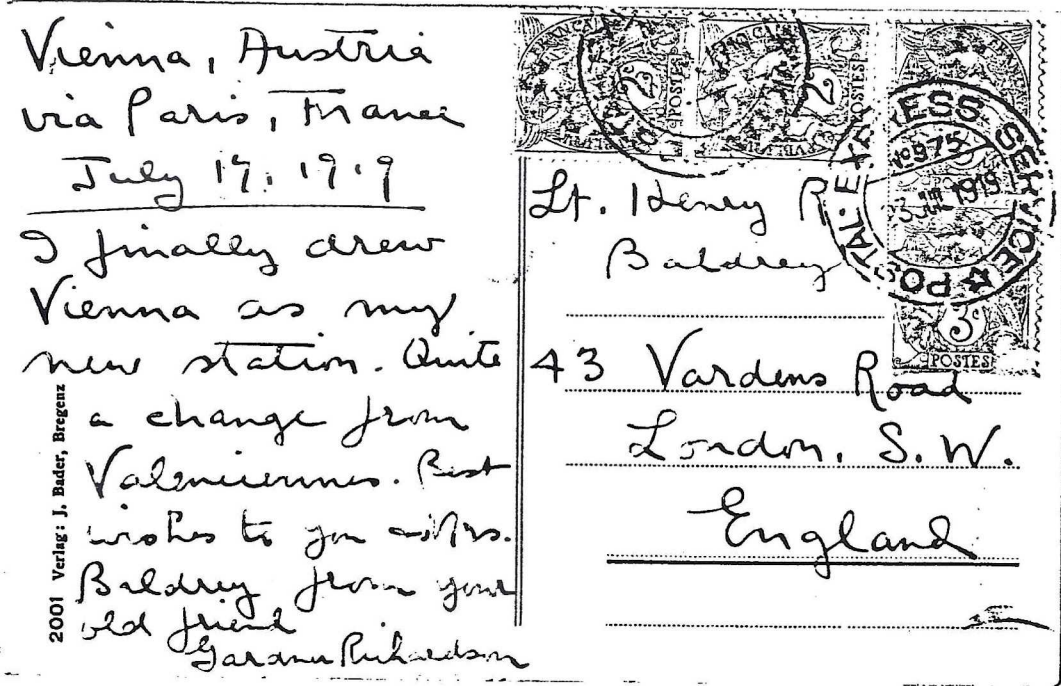 Vienna, Austria
via Paris, France
July 17, 1919
I finally drew
Vienna as my
new station. Quite
a change from
Valenciennes. Best
wishes to you & Mrs.
Baldrey from your
old friend
Gardner Richardson
2001 Verlag: J. Bader, Bregenz
2c
POSTES
2c
POSTES
3c
POSTES
POSTAL EXPRESS SERVICE
1919
Lt. Henry R
Baldrey
43 Vardens Road
London, S. W.
England